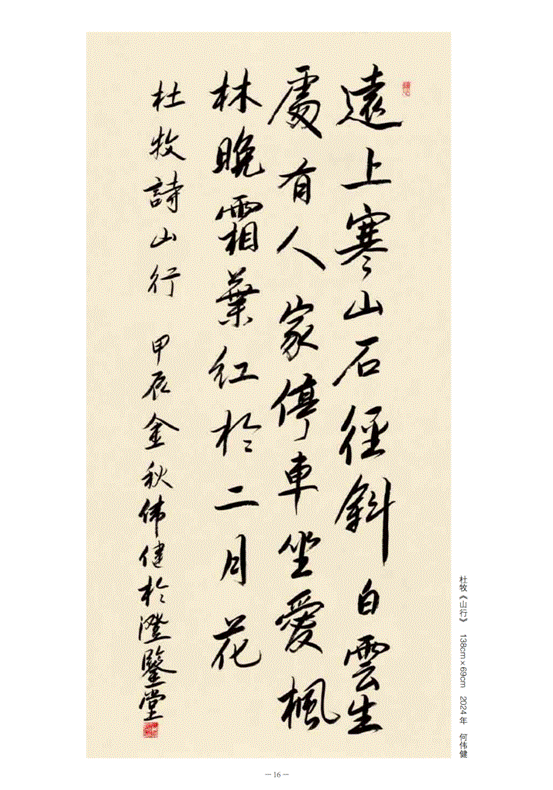 遠上寒山石徑斜白雲生
處有人家停車坐愛楓
林晚霜葉紅於二月花
杜牧詩山行 甲辰金秋伟健於澄鑒堂
杜牧《山行》 138cm×69cm 2024年 何伟健
－16－